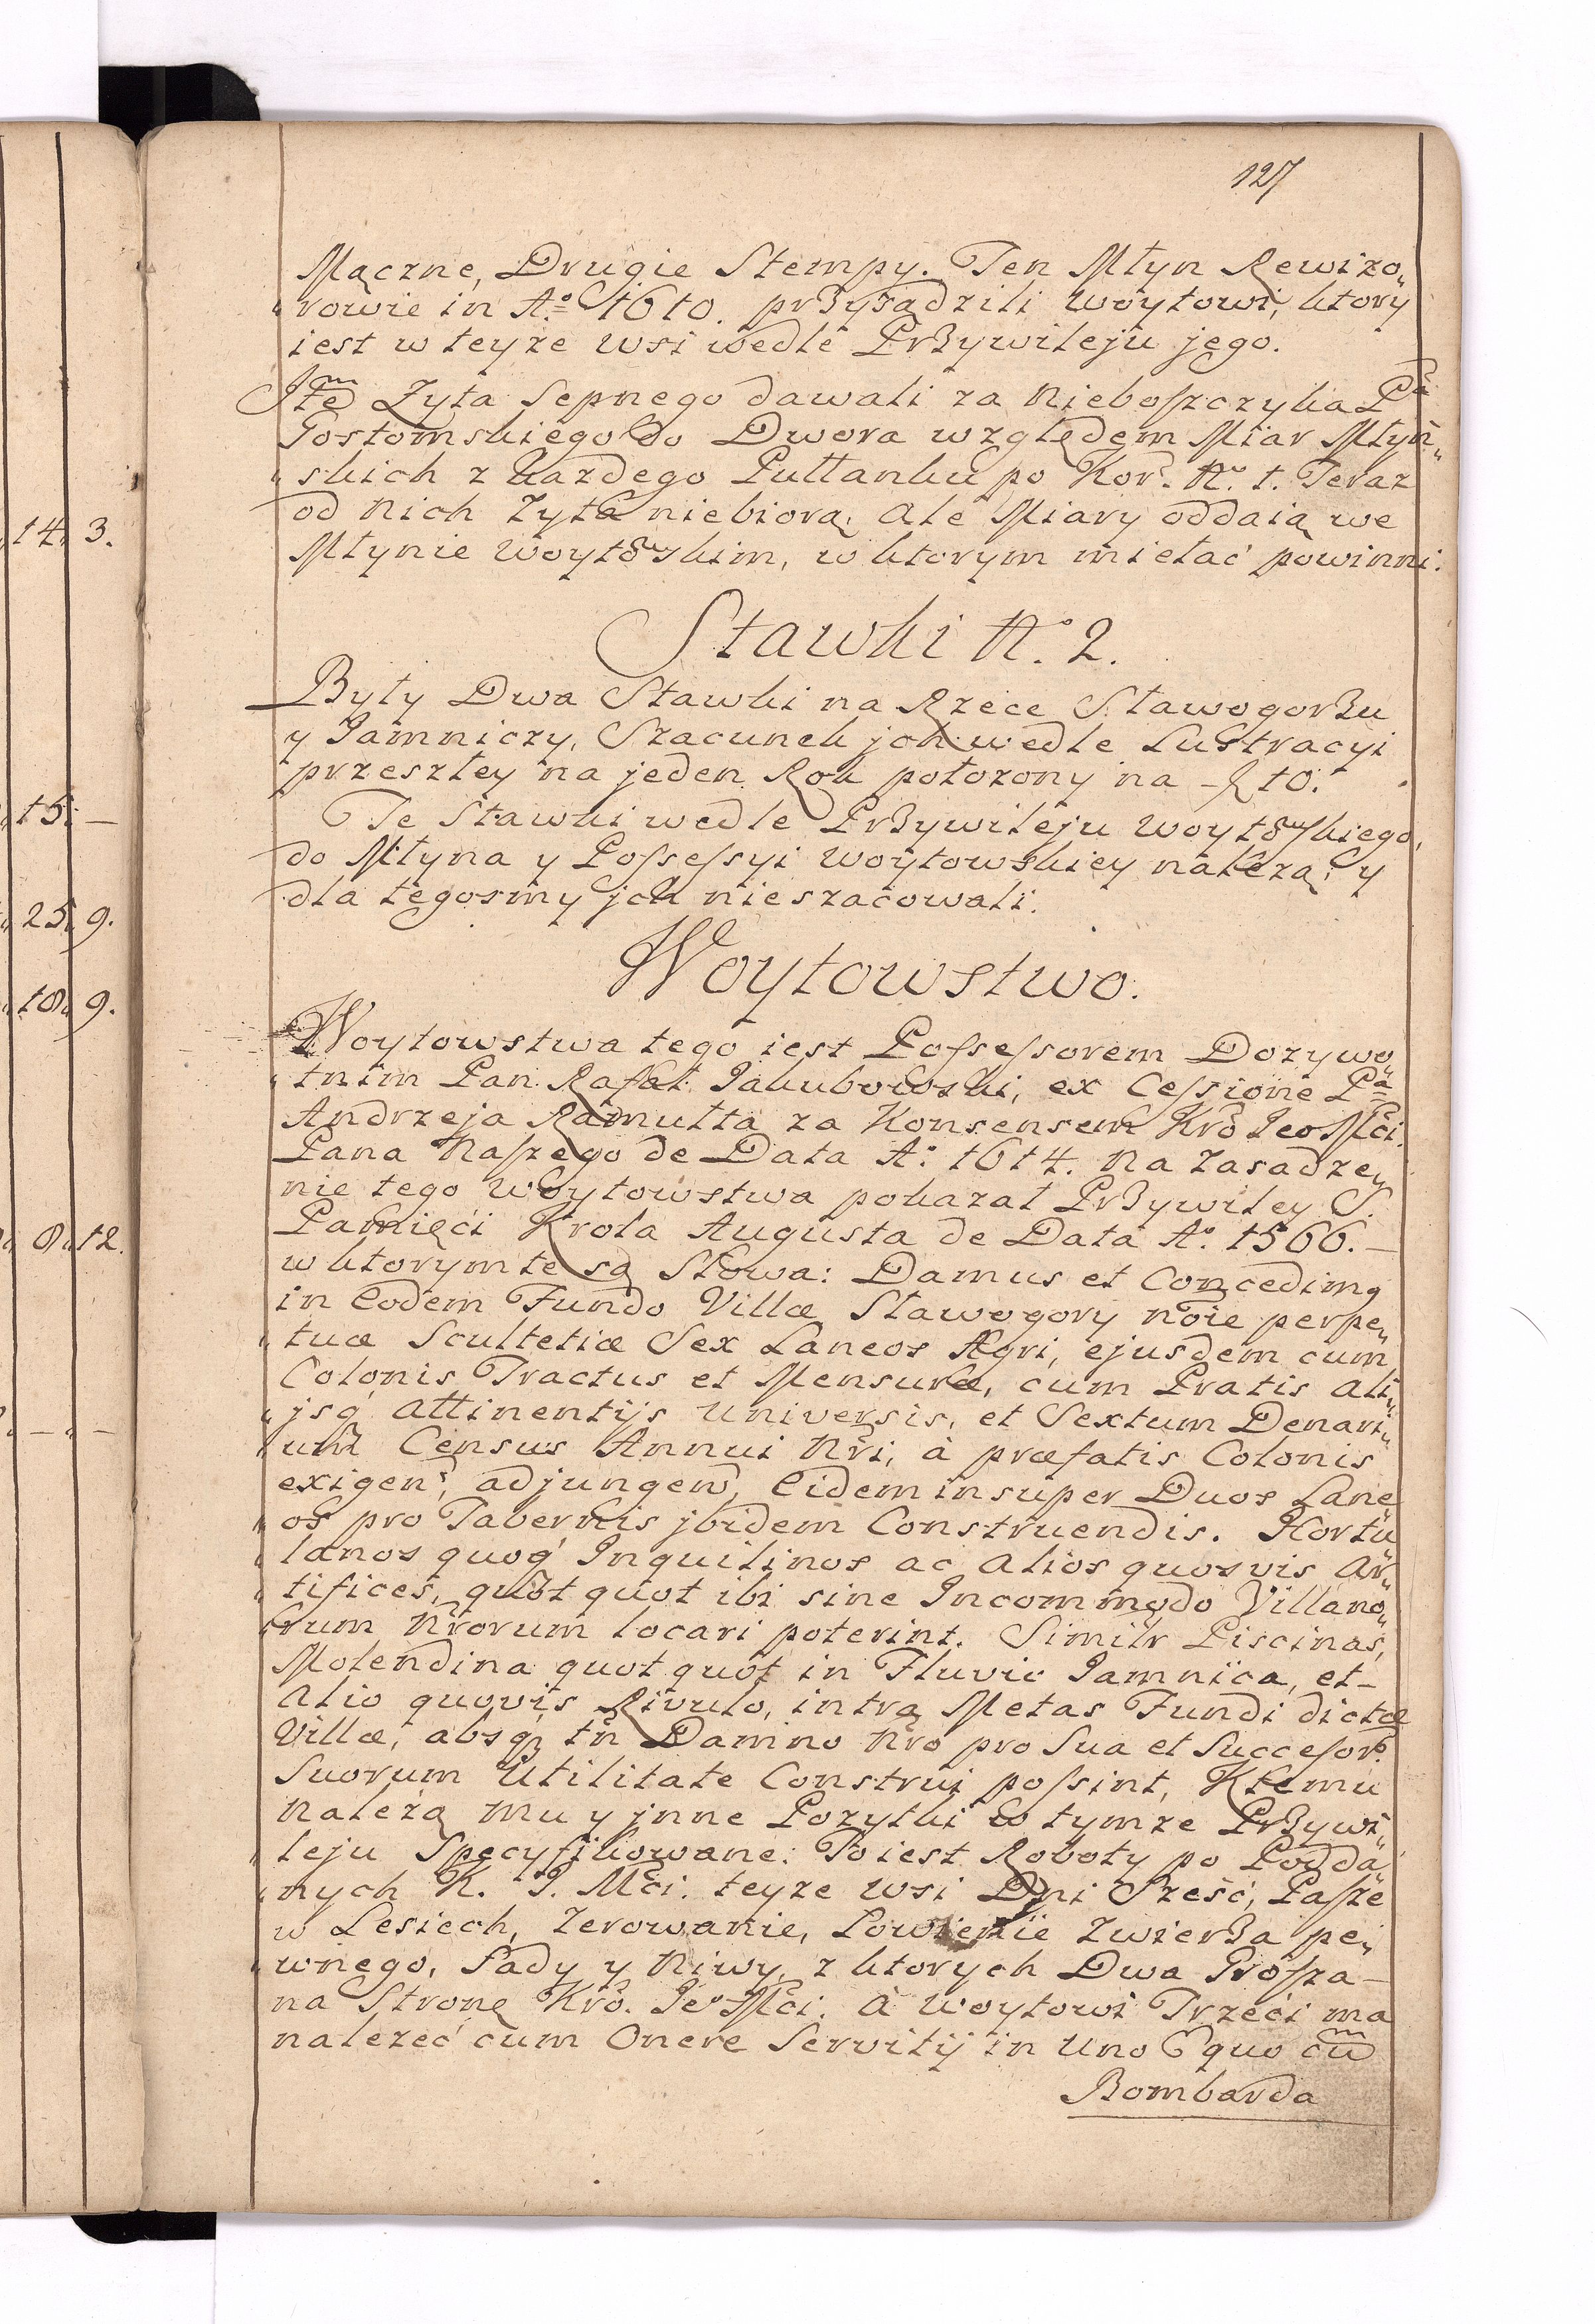 127
Mączne, Drugie Stempy. Ten Młyn Rewizo„
„rowie in Aº 1610. przysądzili woytowi, ktory
iest w teyże wsi wedle Przywileju jego.
Jtẽ Zyta Sepnego dawali za Nieboſzczyka Pª
Gostomskiego do Dwora względem Miar Młyń„
„skich z każdego Pułłanku po Kor. Nº 1. Teraz
od Nich Zyta niebiorą, Ale Miary oddaią we
Młynie woytowskim, w ktorym mielać powinni.
Stawki Nº 2.
Były Dwa Stawki na Rzece Stawogorzu
y Jamniczy, Szacunek jch wedle Lustracyi
przeszłey na jeden Rok położony na f 10.
Te Stawki wedle Przywileju woytowskiego,
do Młyna y Poſseſsyi woytowskiey należą, y
dla tegosmy jch nieszacowali.
Woytowstwo.
Woytowstwa tego iest Poſseſsorem Dozywo„
„tnim Pan Rafał Jakubowski, ex Ceſsione Pª
Andrzeja Ramułta za Konsensem Kro Jeo Mći
Pana Naſzego de Data Aº 1614. Na Zasadze„
nie tego Woytowstwa pokazał Przywiley S.
Pamięci Krola Augusta de Data Aº 1566. —
w ktorym te są Słowa: Damus et Concedimq
in Eodem Fundo Villæ Stawogory noie perpe„
„tuæ Scultetiæ Sex Laneos Agri, ejusdem cum
Colonis Tractus et Mensuræ, cum Pratis ali„
„jsq attinentijs universis, et Sextum Denari„
„um Census Annui Nri, à præfatis Colonis
exigen, adjungen, Eidem insuper Duos Lane„
„os pro Tabernis jbidem Construendis. Hortu„
„lanos quoq Inquilinos ac Alios quosvis Ar„
„tifices, quot quot ibi sine Incommodo Villano„
„rum Nrorum locari poterint. Similr Piscinas,
Molendina quot quot in Fluvio Jamnica, et —
Alio quovis Rivulo, intra Metas Fundi dictæ
Villæ, absq tn Damno Nro pro Sua et Succeſor
Suorum Utilitate Construi poſsint, Ktemu
Należą mu y jnne Pożytki w tymze Przywi„
„leju Specyfikowane: To iest Roboty po Podda„
„nych K. J. Mći. teyże wsi Dni Sześć, Paſze
w Lesiech, Zerowanie, Lowienie Zwierza pe„
„wnego, Sady y Niwy, z ktorych Dwa Groſza —
na Stronę Kro. Jeo Mći. à Woytowi Trzeci ma
należeć cum Onere Servitij in Uno Equo cũ
Bombarda
14 3.
15. —
25 9.
18 9.
8 12.
— —